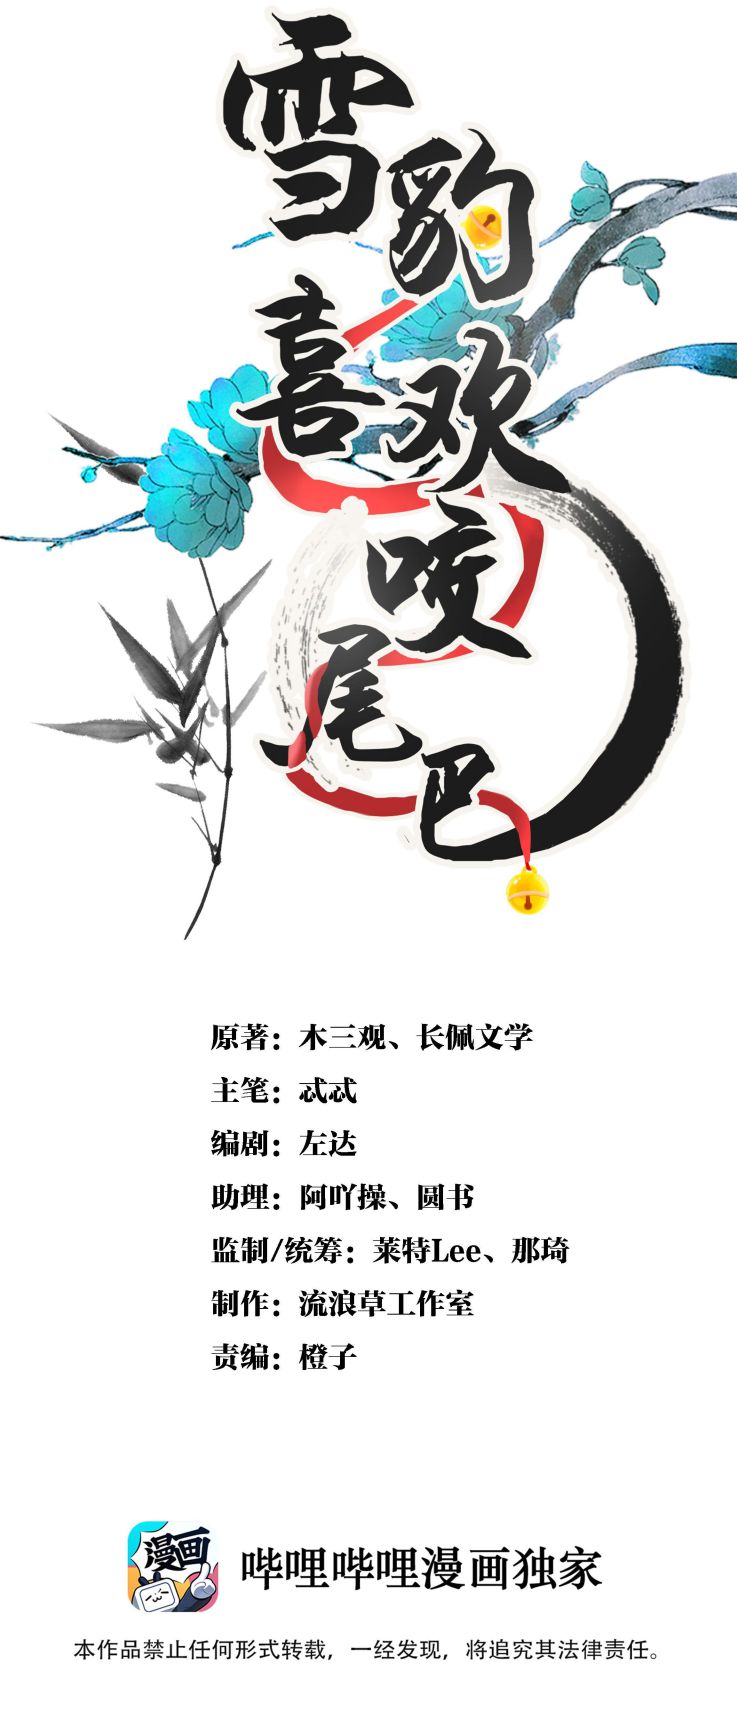 雪豹
喜欢
咬
尾巴
原著：木三观、长佩文学
主笔：忒忒
编剧：左达
助理：阿吖操、圆书
监制/统筹：莱特Lee、那琦
制作：流浪草工作室
责编：橙子
漫画
哔哩哔哩漫画独家
本作品禁止任何形式转载，一经发现，将追究其法律责任。